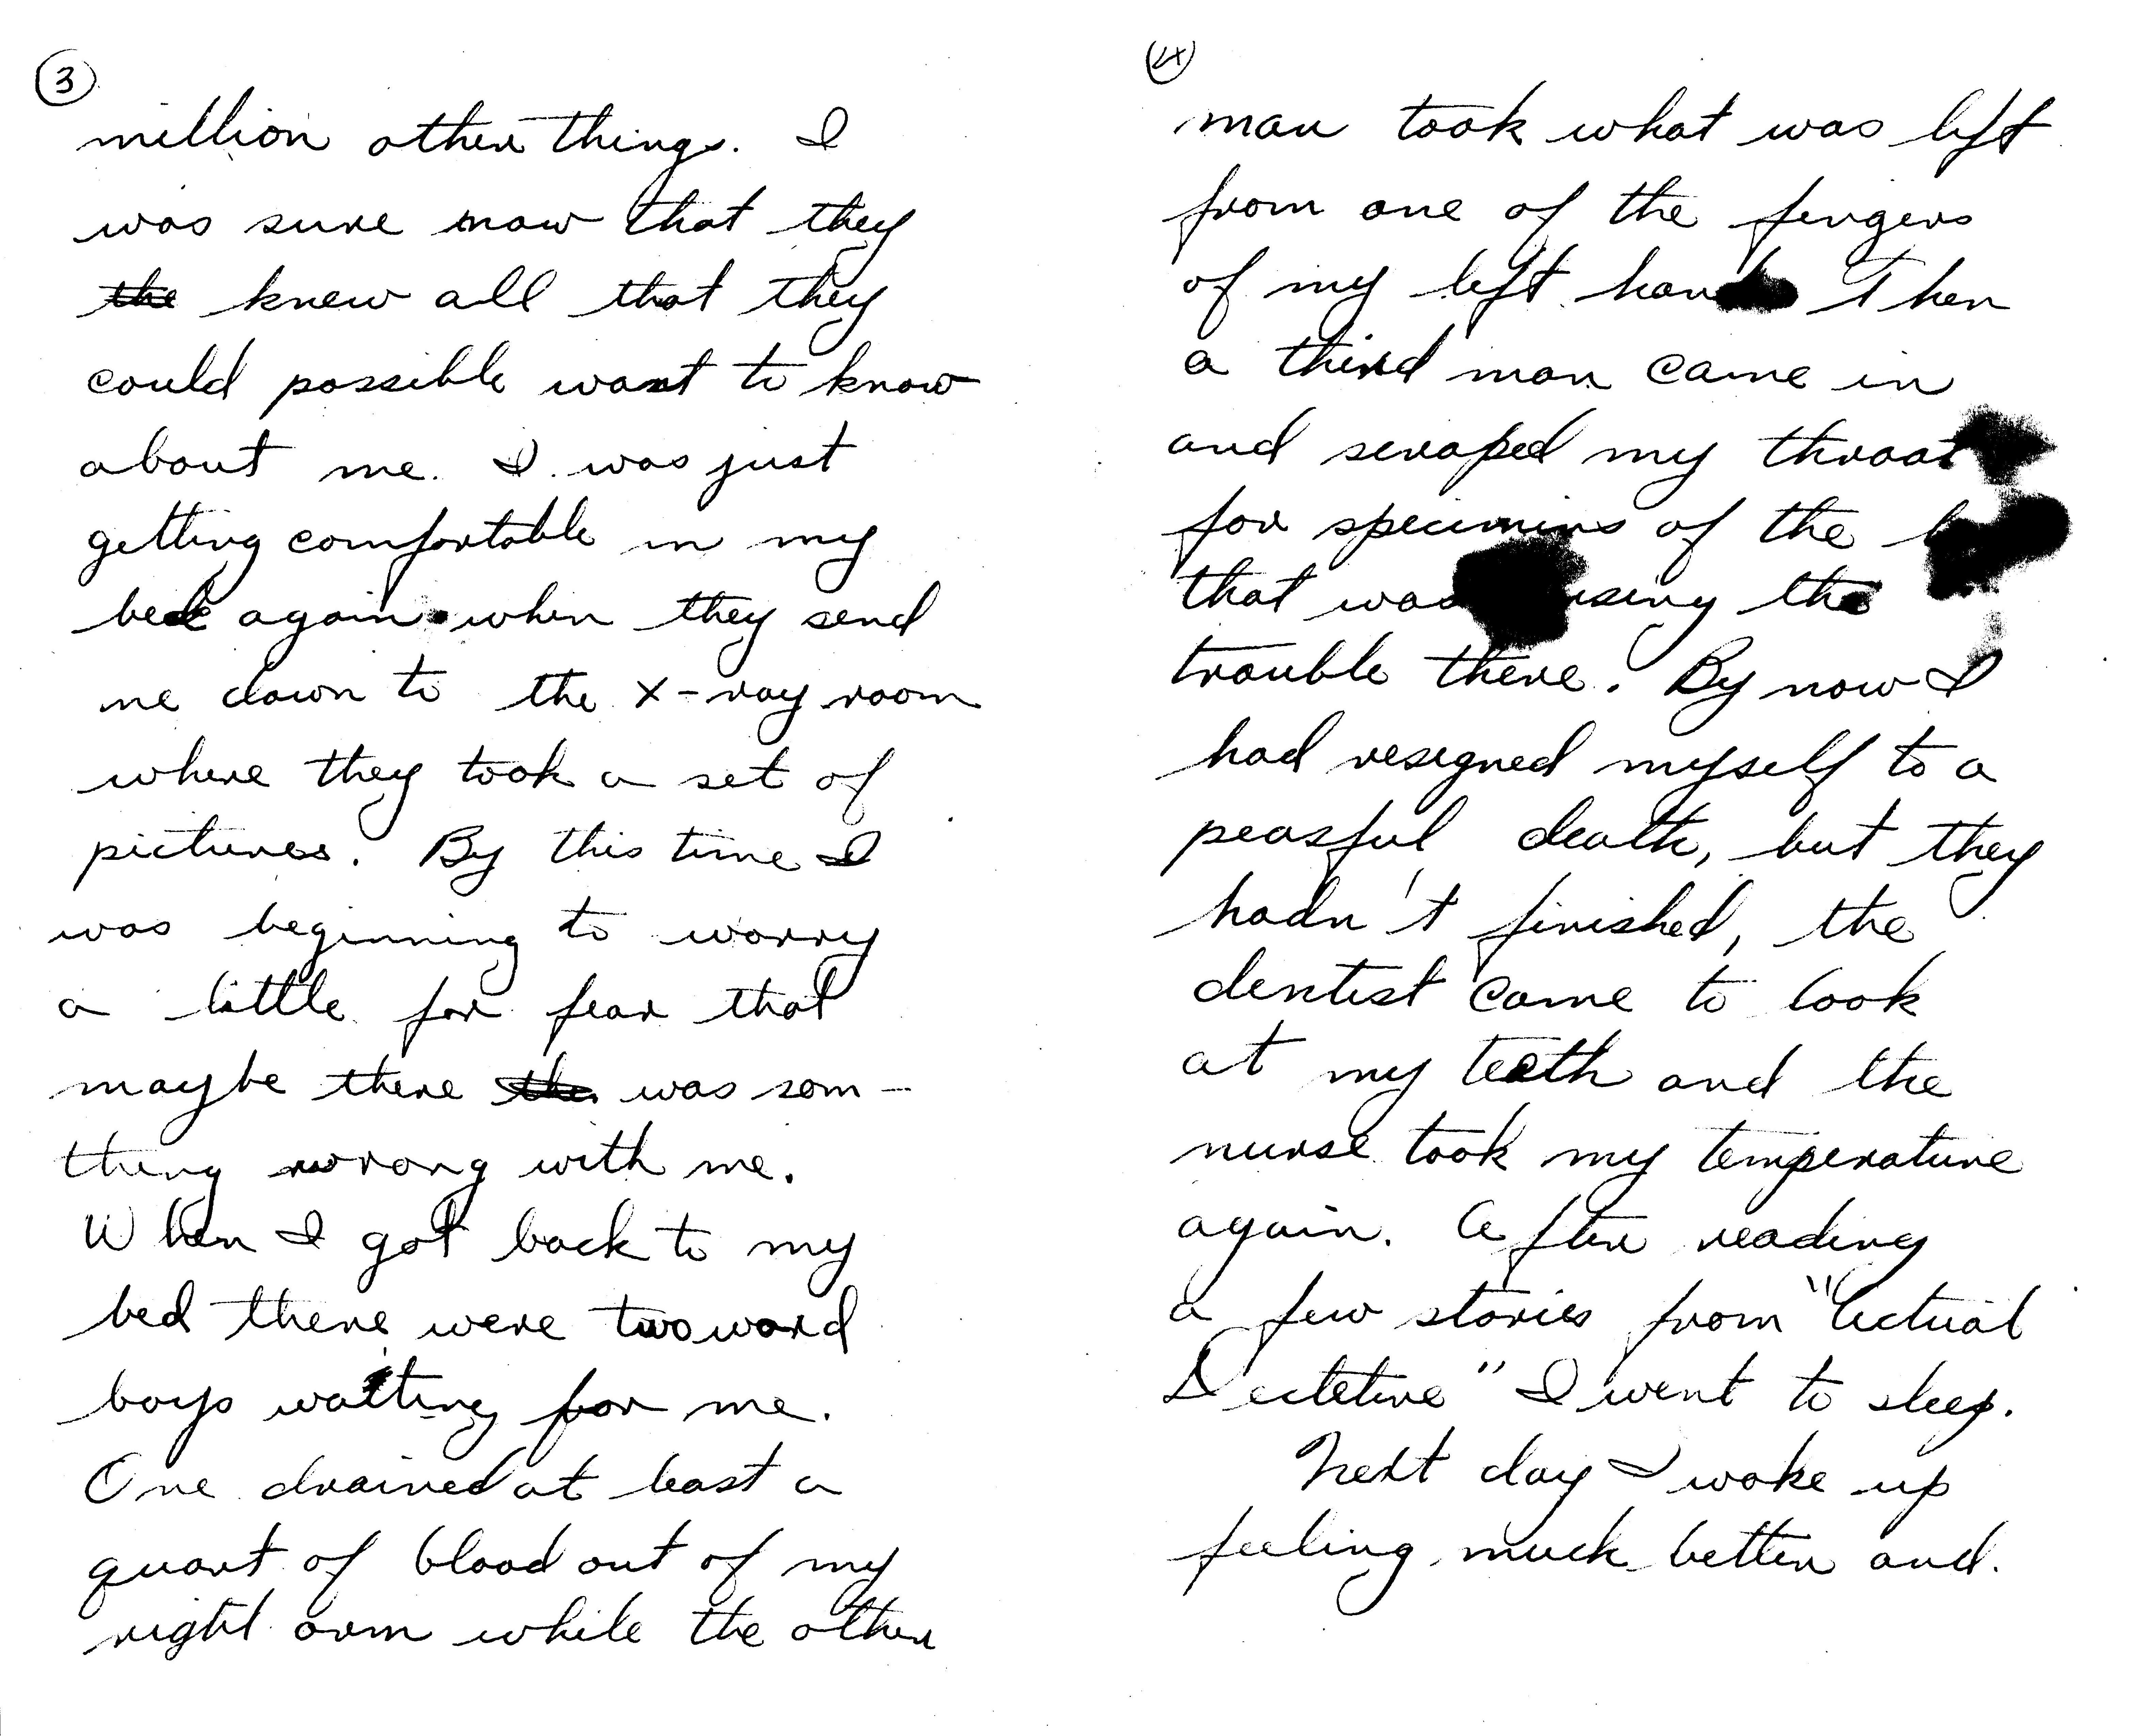 3
million other things. I
was sure now that they
the knew all that they
could possible want to know
about me. I was just
getting comfortable in my
bed again when they send
me down to the x-ray room
where they took a set of
pictures. By this time I
was beginning to worry
a little for fear that
maybe there the was som-
thing wrong with me.
When I got back to my
bed there were two ward
boys waiting for me.
One drained at least a
quart of blood out of my
right arm while the other
4
man took what was left
from one of the fingers
of my left hand Then
a third man came in
and scraped my throat
for specimins of the
that was the
trouble there. By now I
had resigned myself to a
peasful death, but they
hadn't finished, the
dentist came to look
at my teeth and the
nurse took my temperature
again. After reading
a few stories from "Actual
Dectetive" I went to sleep.
Next day I woke up
feeling much better and.